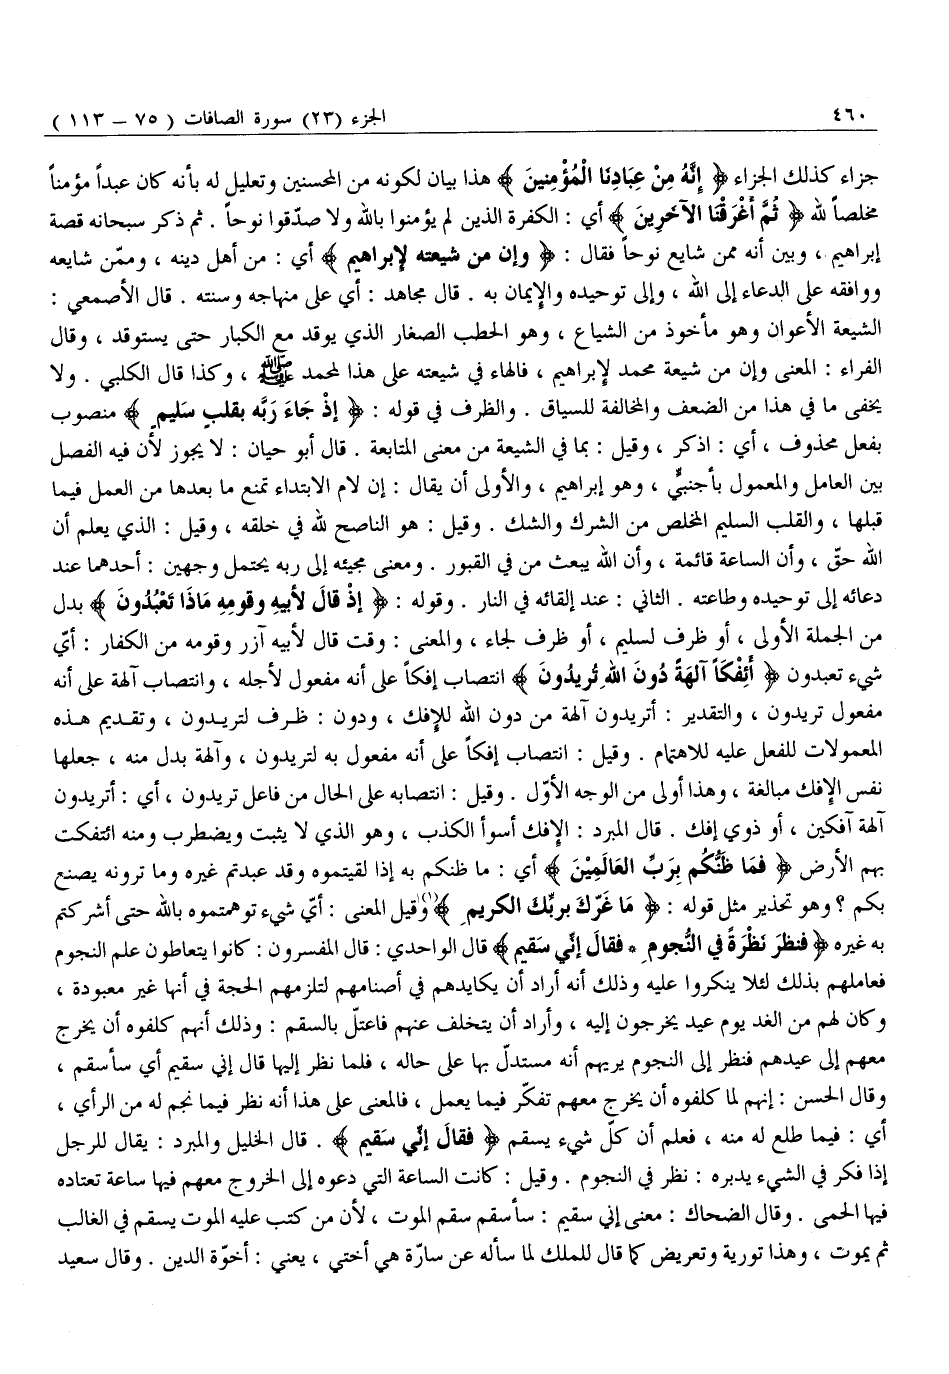 ٤٦٠ الجزء (٢٣) سورة الصافات ( ٧٥ – ١١٣ )
جزاء كذلك الجزاء ﴿ إِنَّهُ مِنْ عِبَادِنَا الْمُؤْمِنينَ ﴾ هذا بيان لكونه من المحسنين وتعليل له بأنه كان عبداً مؤمناً
مخلصاً لله ﴿ ثُمَّ أَغْرَقْنَا الآخَرِينَ ﴾ أي : الكفرة الذين لم يؤمنوا بالله ولا صدّقوا نوحاً . ثم ذكر سبحانه قصة
إبراهيم ، وبين أنه ممن شايع نوحاً فقال : ﴿ وإن من شيعته لإبراهيم ﴾ أي : من أهل دينه ، وممّن شايعه
ووافقه على الدعاء إلى الله ، وإلى توحيده والإيمان به . قال مجاهد : أي على منهاجه وسنته . قال الأصمعي :
الشيعة الأعوان وهو مأخوذ من الشياع ، وهو الحطب الصغار الذي يوقد مع الكبار حتى يستوقد ، وقال
الفراء : المعنى وإن من شيعة محمد لإبراهيم ، فالهاء في شيعته على هذا لمحمد ﷺ ، وكذا قال الكلبي . ولا
يخفى ما في هذا من الضعف والمخالفة للسياق . والظرف في قوله : ﴿ إذْ جَاءَ رَبَّه بقلبٍ سَليمٍ ﴾ منصوب
بفعل محذوف ، أي : اذكر ، وقيل : بما في الشيعة من معنى المتابعة . قال أبو حيان : لا يجوز لأن فيه الفصل
بين العامل والمعمول بأجنبيٍّ ، وهو إبراهيم ، والأولى أن يقال : إن لام الابتداء تمنع ما بعدها من العمل فيما
قبلها ، والقلب السليم المخلص من الشرك والشك . وقيل : هو الناصح لله في خلقه ، وقيل : الذي يعلم أن
الله حقّ ، وأن الساعة قائمة ، وأن الله يبعث من في القبور . ومعنى مجيئه إلى ربه يحتمل وجهين : أحدهما عند
دعائه إلى توحيده وطاعته . الثاني : عند إلقائه في النار . وقوله : ﴿ إذْ قالَ لأبيهِ وقومِهِ مَاذَا تَعْبُدُونَ ﴾ بدل
من الجملة الأولى ، أو ظرف لسليم ، أو ظرف لجاء ، والمعنى : وقت قال لأبيه آزر وقومه من الكفار : أيّ
شيء تعبدون ﴿ أَئِفْكَاً آلهَةً دُونَ اللهِ تُريدُونَ ﴾ انتصاب إفكاً على أنه مفعول لأجله ، وانتصاب آلهة على أنه
مفعول تريدون ، والتقدير : أتريدون آلهة من دون الله للإفك ، ودون : ظرف لتريدون ، وتقديم هذه
المعمولات للفعل عليه للاهتمام . وقيل : انتصاب إفكاً على أنه مفعول به لتريدون ، وآلهة بدل منه ، جعلها
نفس الإفك مبالغة ، وهذا أولى من الوجه الأوّل . وقيل : انتصابه على الحال من فاعل تريدون ، أي : أتريدون
آلهة آفكين ، أو ذوي إفك . قال المبرد : الإفك أسوأ الكذب ، وهو الذي لا يثبت ويضطرب ومنه ائتفكت
بهم الأرض ﴿ فمَا ظَنُّكُم بِرَبِّ العَالَمِيْنَ ﴾ أي : ما ظنكم به إذا لقيتموه وقد عبدتم غيره وما ترونه يصنع
بكم ؟ وهو تحذير مثل قوله : ﴿ مَا غَرَّكَ بربِّكَ الكريمِ ﴾(١) وقيل المعنى : أيّ شيء توهمتموه بالله حتى أشركتم
به غيره ﴿ فنظرَ نَظْرَةً في النُّجوم * فقالَ إنّي سَقيم ﴾ قال الواحدي : قال المفسرون : كانوا يتعاطون علم النجوم
فعاملهم بذلك لئلا ينكروا عليه وذلك أنه أراد أن يكايدهم في أصنامهم لتلزمهم الحجة في أنها غير معبودة ،
وكان لهم من الغد يوم عيد يخرجون إليه ، وأراد أن يتخلف عنهم فاعتلّ بالسقم : وذلك أنهم كلفوه أن يخرج
معهم إلى عيدهم فنظر إلى النجوم يريهم أنه مستدلّ بها على حاله ، فلما نظر إليها قال إني سقيم أي سأسقم ،
وقال الحسن : إنهم لما كلفوه أن يخرج معهم تفكّر فيما يعمل ، فالمعنى على هذا أنه نظر فيما نجم له من الرأي ،
أي : فيما طلع له منه ، فعلم أن كلّ شيء يسقم ﴿ فقالَ إنّي سَقيم ﴾ . قال الخليل والمبرد : يقال للرجل
إذا فكر في الشيء يدبره : نظر في النجوم . وقيل : كانت الساعة التي دعوه إلى الخروج معهم فيها ساعة تعتاده
فيها الحمى . وقال الضحاك : معنى إني سقيم : سأسقم سقم الموت ، لأن من كتب عليه الموت يسقم في الغالب
ثم يموت ، وهذا تورية وتعريض كما قال للملك لما سأله عن سارّة هي أختي ، يعني : أخوّة الدين . وقال سعيد